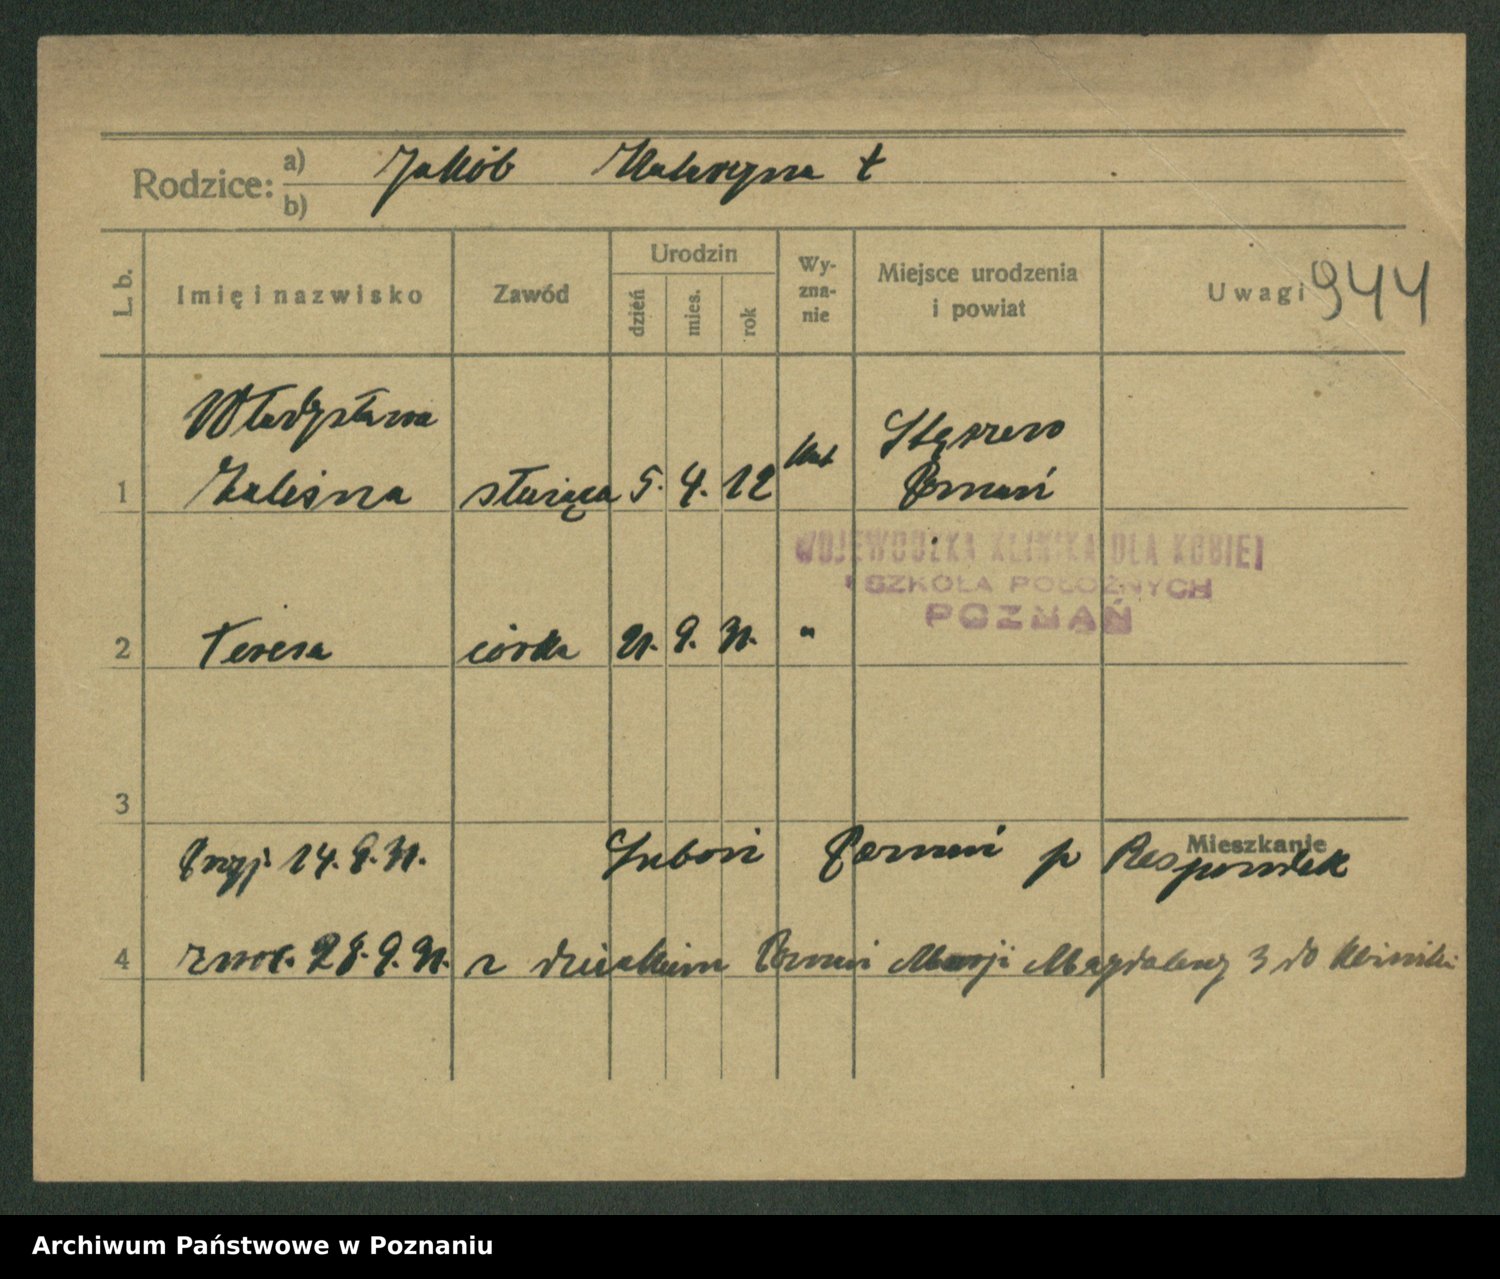 Rodzice: a) Jakób Katarzyna †
b)
L. b.
Imię i nazwisko
Zawód
Urodzin
dzień
mies.
rok
Wy-
zna-
nie
Miejsce urodzenia
i powiat
Uwagi 944
Władysława
1 Zaleśna służąca 5. 4. 12 kat Stęszewo
Poznań
WOJEWÓDZKA KLINIKA DLA KOBIET
I SZKOŁA POŁOŻNYCH
POZNAŃ
2 Teresa córka 21. 9. 31. "
3
Mieszkanie
Przyj. 14. 9. 31. Luboń Poznań p Respondek
4 zwol. 28. 9. 31. z dzieckiem Poznań Marji Magdaleny 3 do kliniki
Archiwum Państwowe w Poznaniu